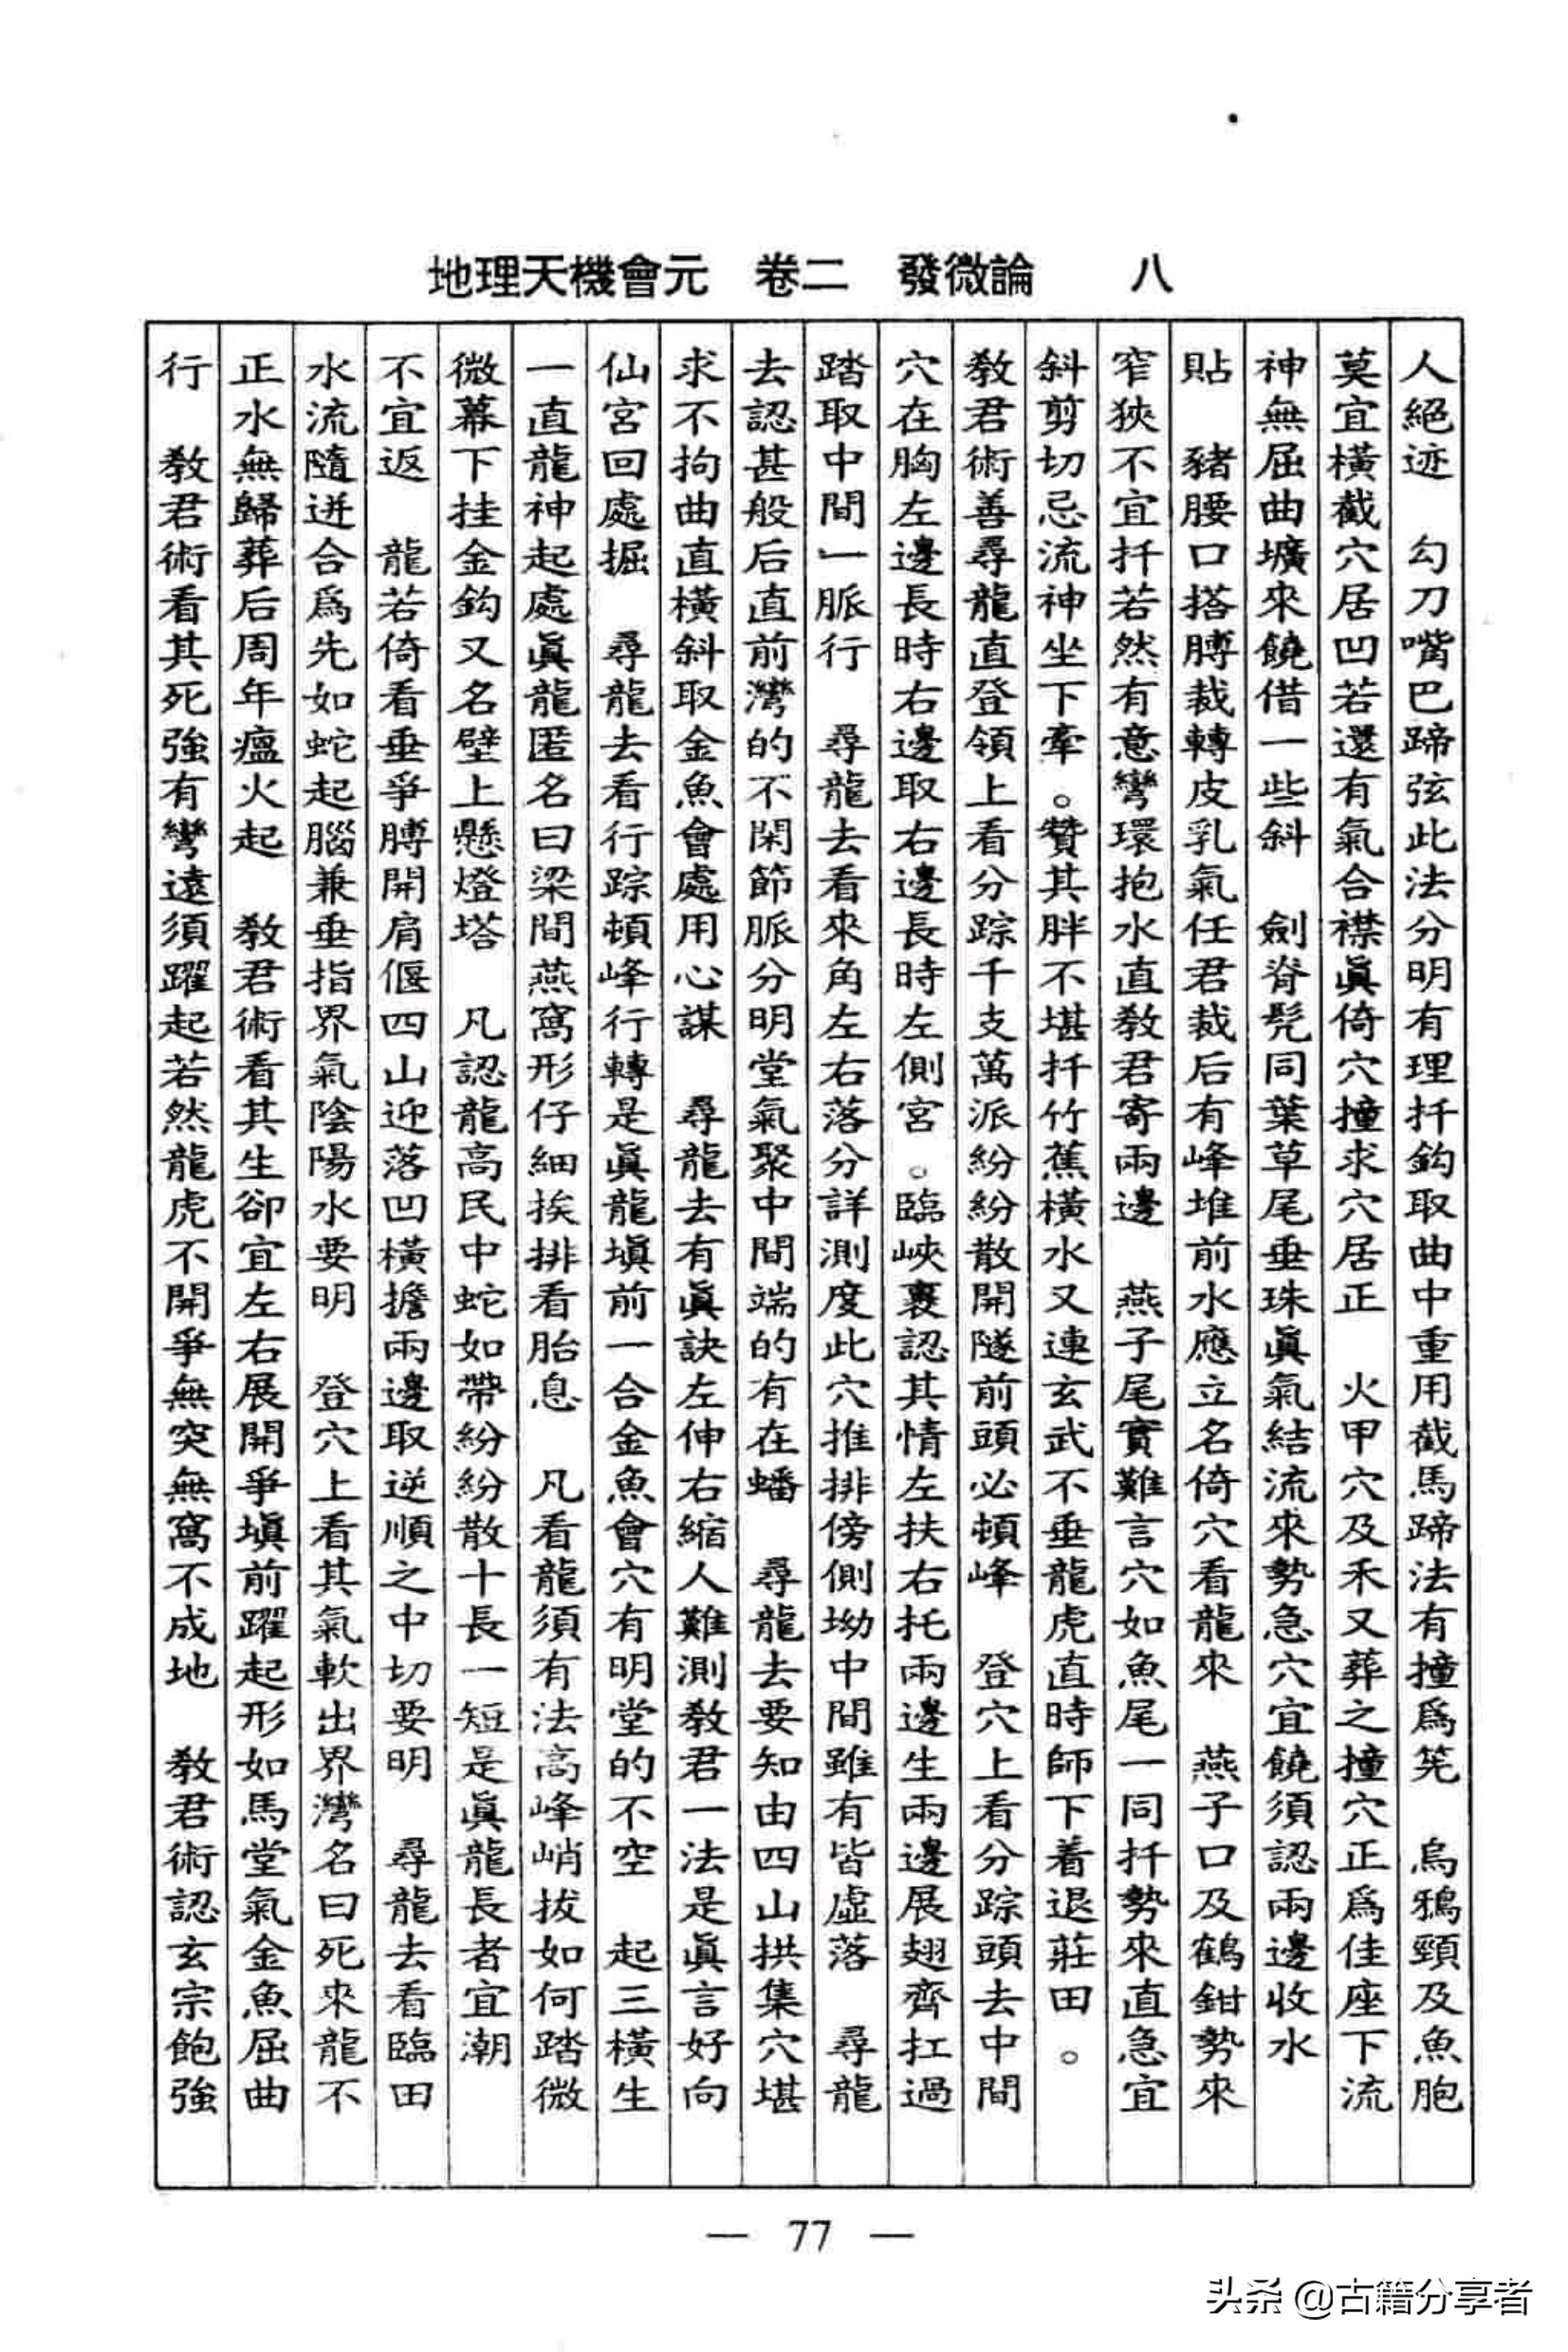 地理天機會元　卷二　發微論　　八
人絕迹　勾刀嘴巴蹄弦此法分明有理扦鈎取曲中重用截馬蹄法有撞爲筅　烏鴉頸及魚胞
莫宜橫截穴居凹若還有氣合襟眞倚穴撞求穴居正　火甲穴及禾叉葬之撞穴正爲佳座下流
神無屈曲壙來饒借一些斜　劍脊髡同葉草尾垂珠眞氣結流來勢急穴宜饒須認兩邊收水
貼　豬腰口搭膊裁轉皮乳氣任君裁后有峰堆前水應立名倚穴看龍來　燕子口及鶴鉗勢來
窄狹不宜扦若然有意彎環抱水直教君寄兩邊　燕子尾實難言穴如魚尾一同扦勢來直急宜
斜剪切忌流神坐下牽。贊其胖不堪扦竹蕉橫水又連玄武不垂龍虎直時師下着退莊田。
教君術善尋龍直登領上看分踪千支萬派紛紛散開隧前頭必頓峰　登穴上看分踪頭去中間
穴在胸左邊長時右邊取右邊長時左側宮。臨峽裏認其情左扶右托兩邊生兩邊展翅齊扛過
踏取中間一脈行　尋龍去看來角左右落分詳測度此穴推排傍側坳中間雖有皆虛落　尋龍
去認甚般后直前灣的不閑節脈分明堂氣聚中間端的有在蟠　尋龍去要知由四山拱集穴堪
求不拘曲直橫斜取金魚會處用心謀　尋龍去有眞訣左伸右縮人難測教君一法是眞言好向
仙宮回處掘　尋龍去看行踪頓峰行轉是眞龍塡前一合金魚會穴有明堂的不空　起三橫生
一直龍神起處眞龍匿名曰梁間燕窩形仔細挨排看胎息　凡看龍須有法高峰峭拔如何踏微
微幕下挂金鈎又名壁上懸燈塔　凡認龍高民中蛇如帶紛紛散十長一短是眞龍長者宜潮
不宜返　龍若倚看垂爭膊開肩偃四山迎落凹橫擔兩邊取逆順之中切要明　尋龍去看臨田
水流隨迸合爲先如蛇起腦兼垂指界氣陰陽水要明　登穴上看其氣軟出界灣名曰死來龍不
正水無歸葬后周年瘟火起　教君術看其生卻宜左右展開爭塡前躍起形如馬堂氣金魚屈曲
行　教君術看其死強有彎遠須躍起若然龍虎不開爭無突無窩不成地　教君術認玄宗飽強
— 77 —
头条 @古籍分享者